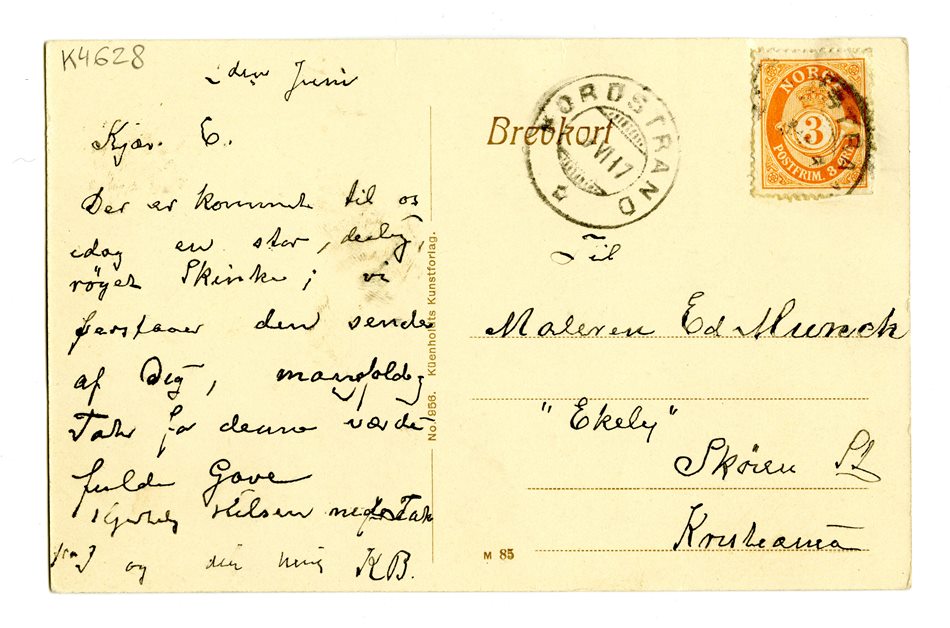 K4628
2den Juni
Kjær. E.
Der er kommet til os
idag en stor, deilig,
røget Skinke; vi
forstaaer den sendt
af Dig, mangfoldig
Tak for denne værdi
fulde Gave
Hjertelig Hilsen med Tak
fra I og din KB.
No. 956. Küenholdts Kunstforlag.
Brevkort
NORDSTRAND
VI 17
NORGE
3
POSTFRIM. 3 ØRE
STRA
Til
Maleren Ed Munch
"Ekely"
Skøien St
Kristiania
M 85